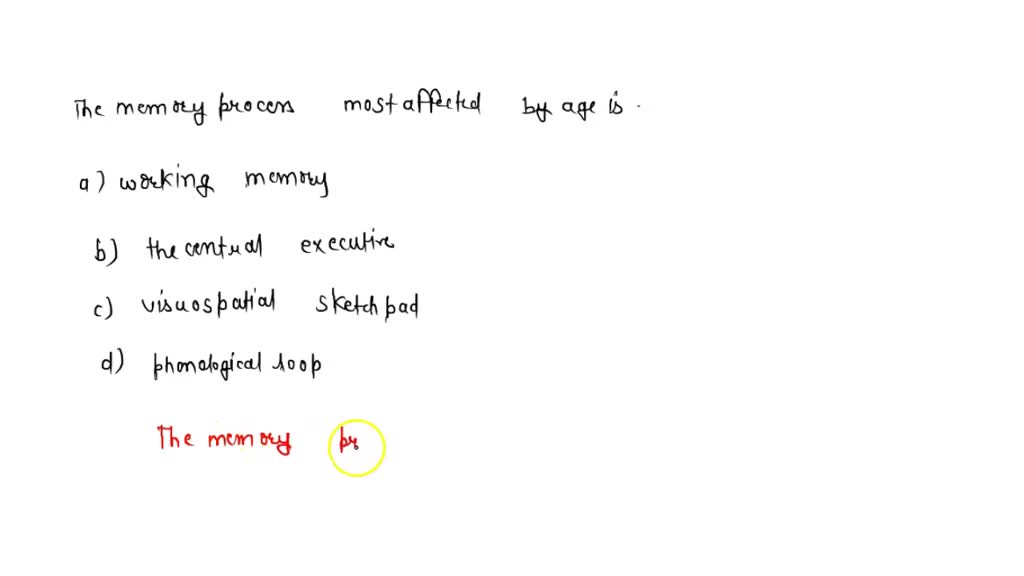 The memory process most affected by age is .
a) working memory
b) the central executive
c) visuospatial sketchpad
d) phonological loop
The memory pr